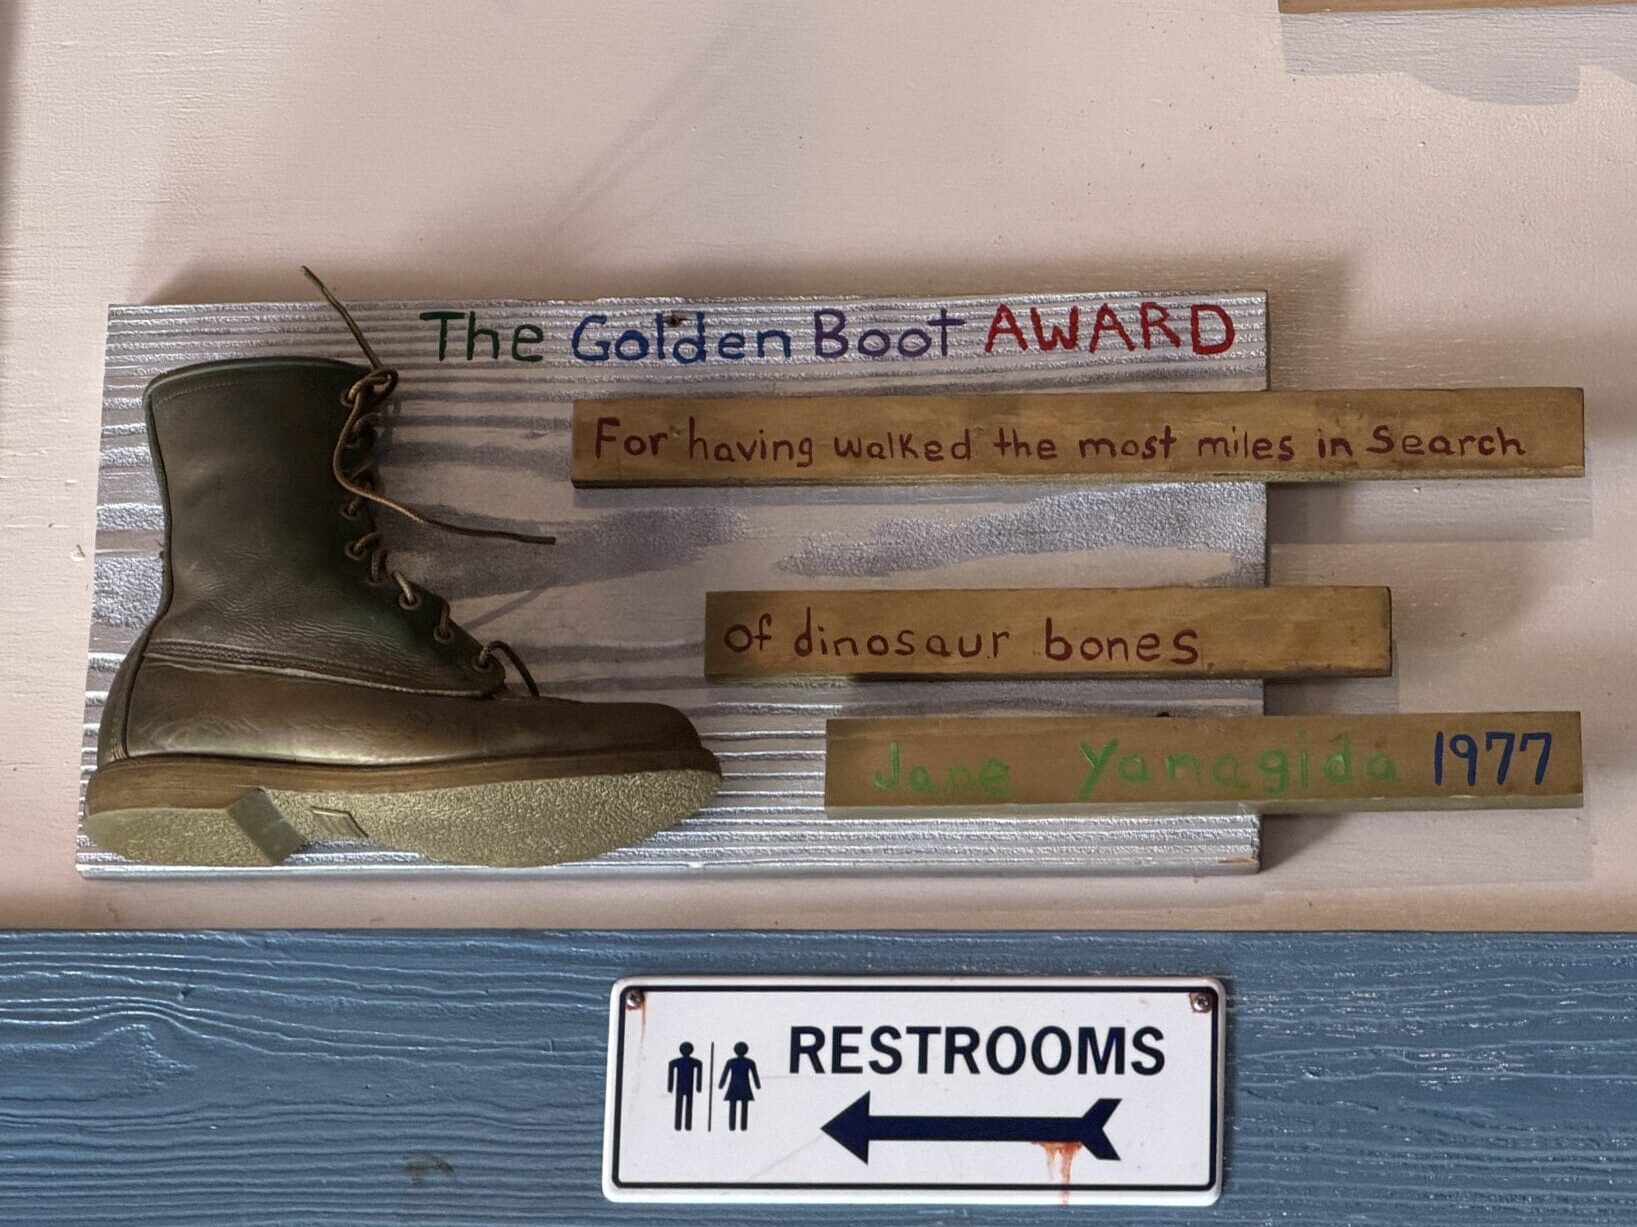 The Golden Boot AWARD
For having walked the most miles in Search
of dinosaur bones
Jane Yanagida 1977
RESTROOMS